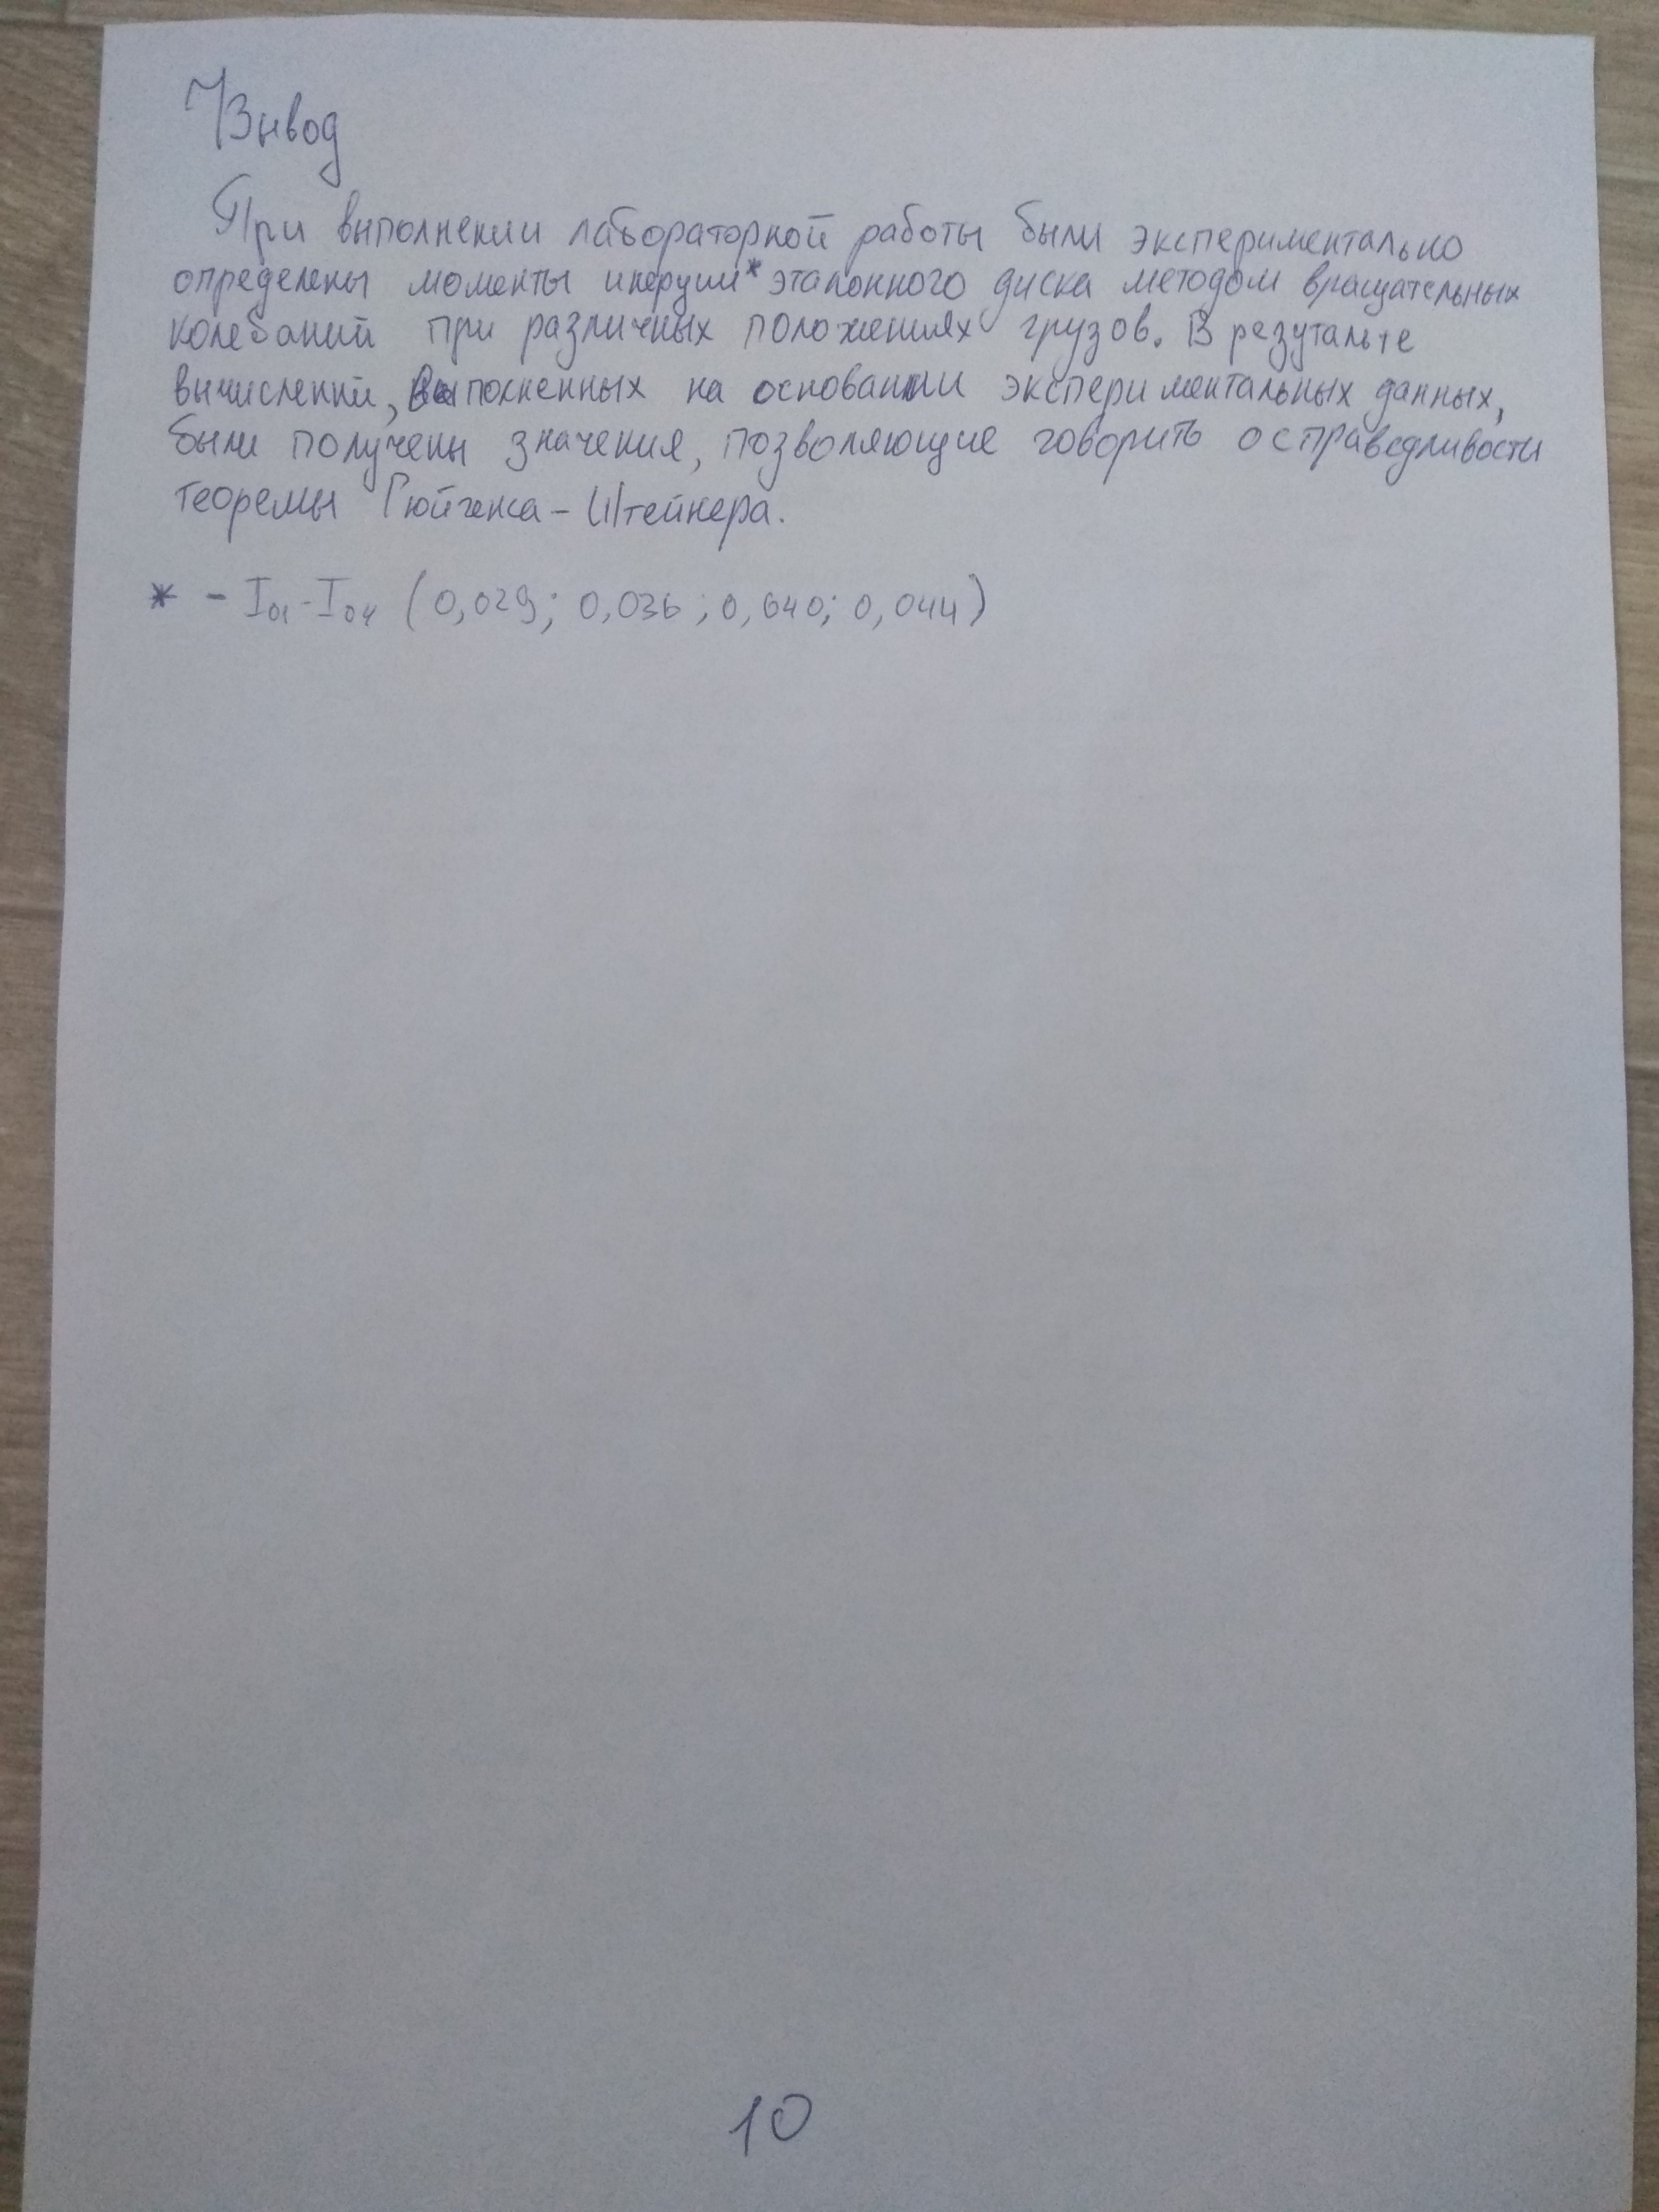 Вывод
При выполнении лабораторной работы были экспериментально
определены моменты инерции* эталонного диска методом вращательных
колебаний при различных положениях грузов. В резутальте
вычислений, выполненных на основании экспериментальных данных,
были получены значения, позволяющие говорить о справедливости
теоремы Гюйгенса - Штейнера.
* - I₀₁ - I₀₄ (0,029; 0,036; 0,040; 0,044)
10